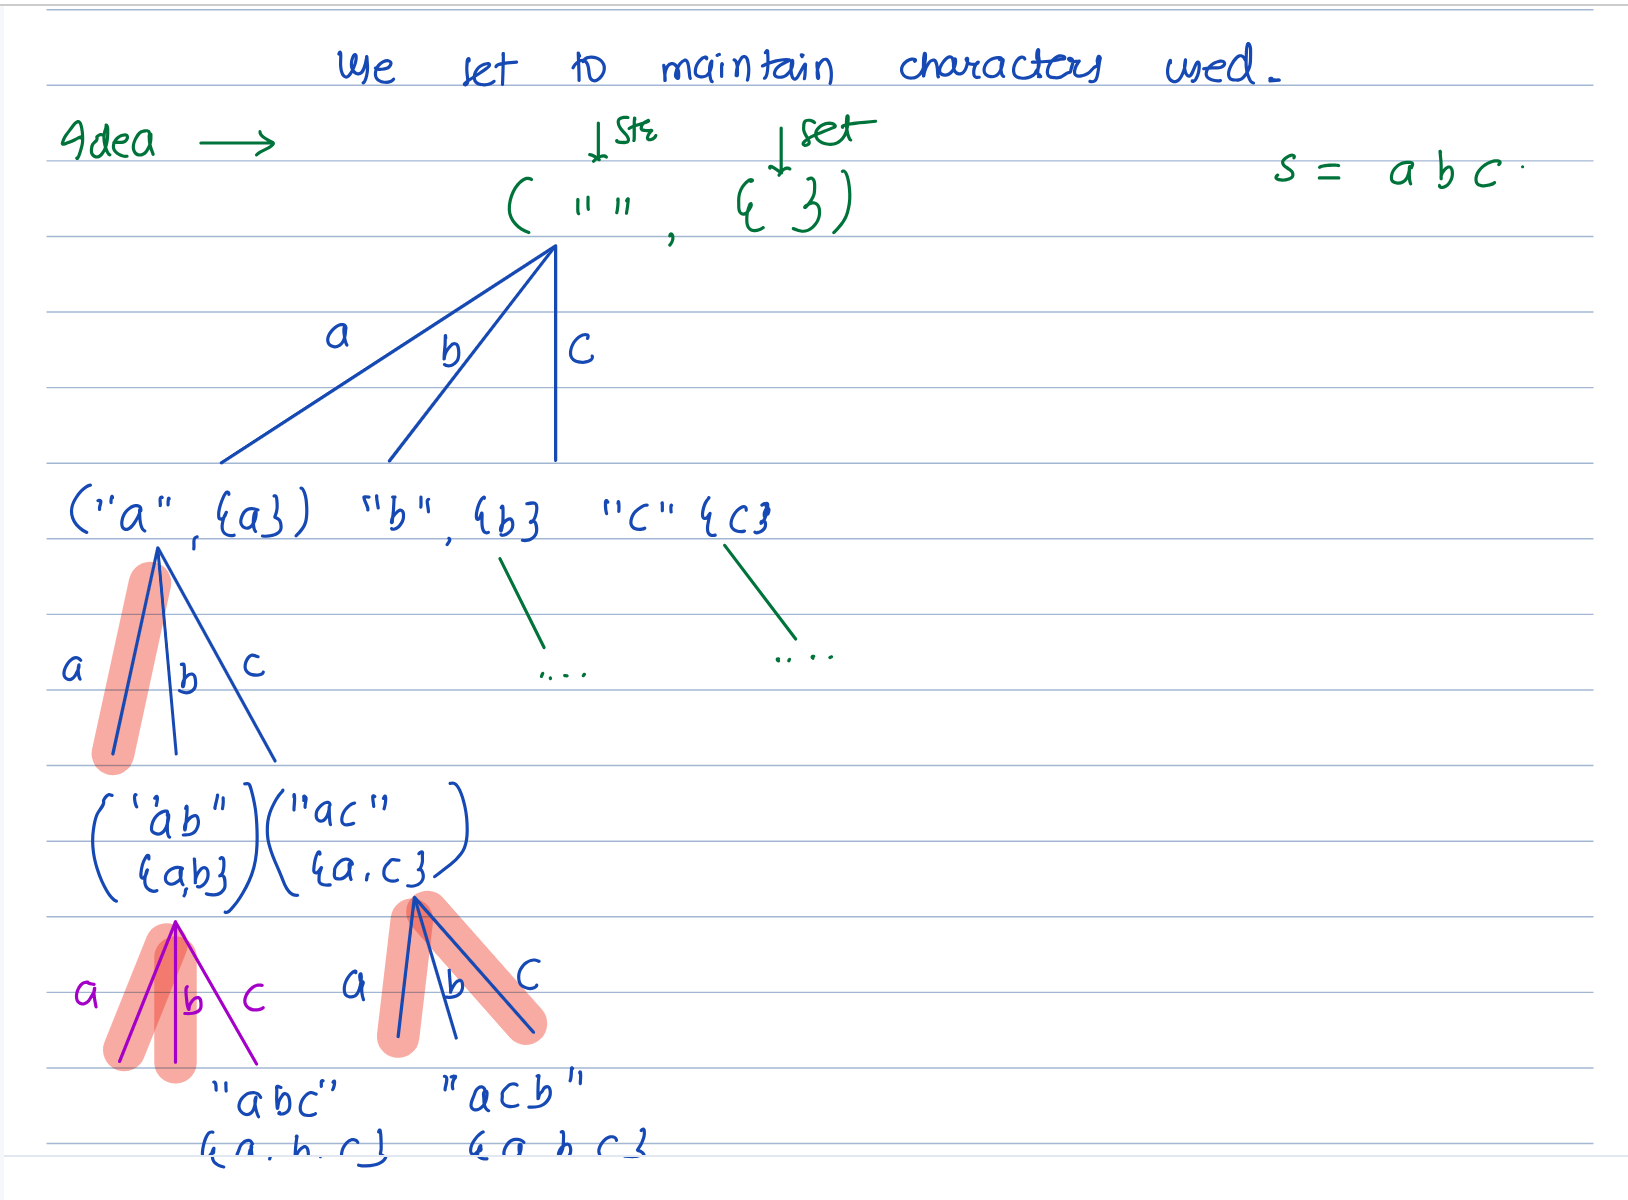 Use set to maintain characters used.
Idea → ↓ str ↓ set
s = abc.
( " " , { } )
a b c
("a", {a}) "b", {b} "c" {c}
a b c
.... ....
"ab" "ac"
{a,b} {a,c}
a b c a b c
"abc" "acb"
{a,b,c} {a b c}